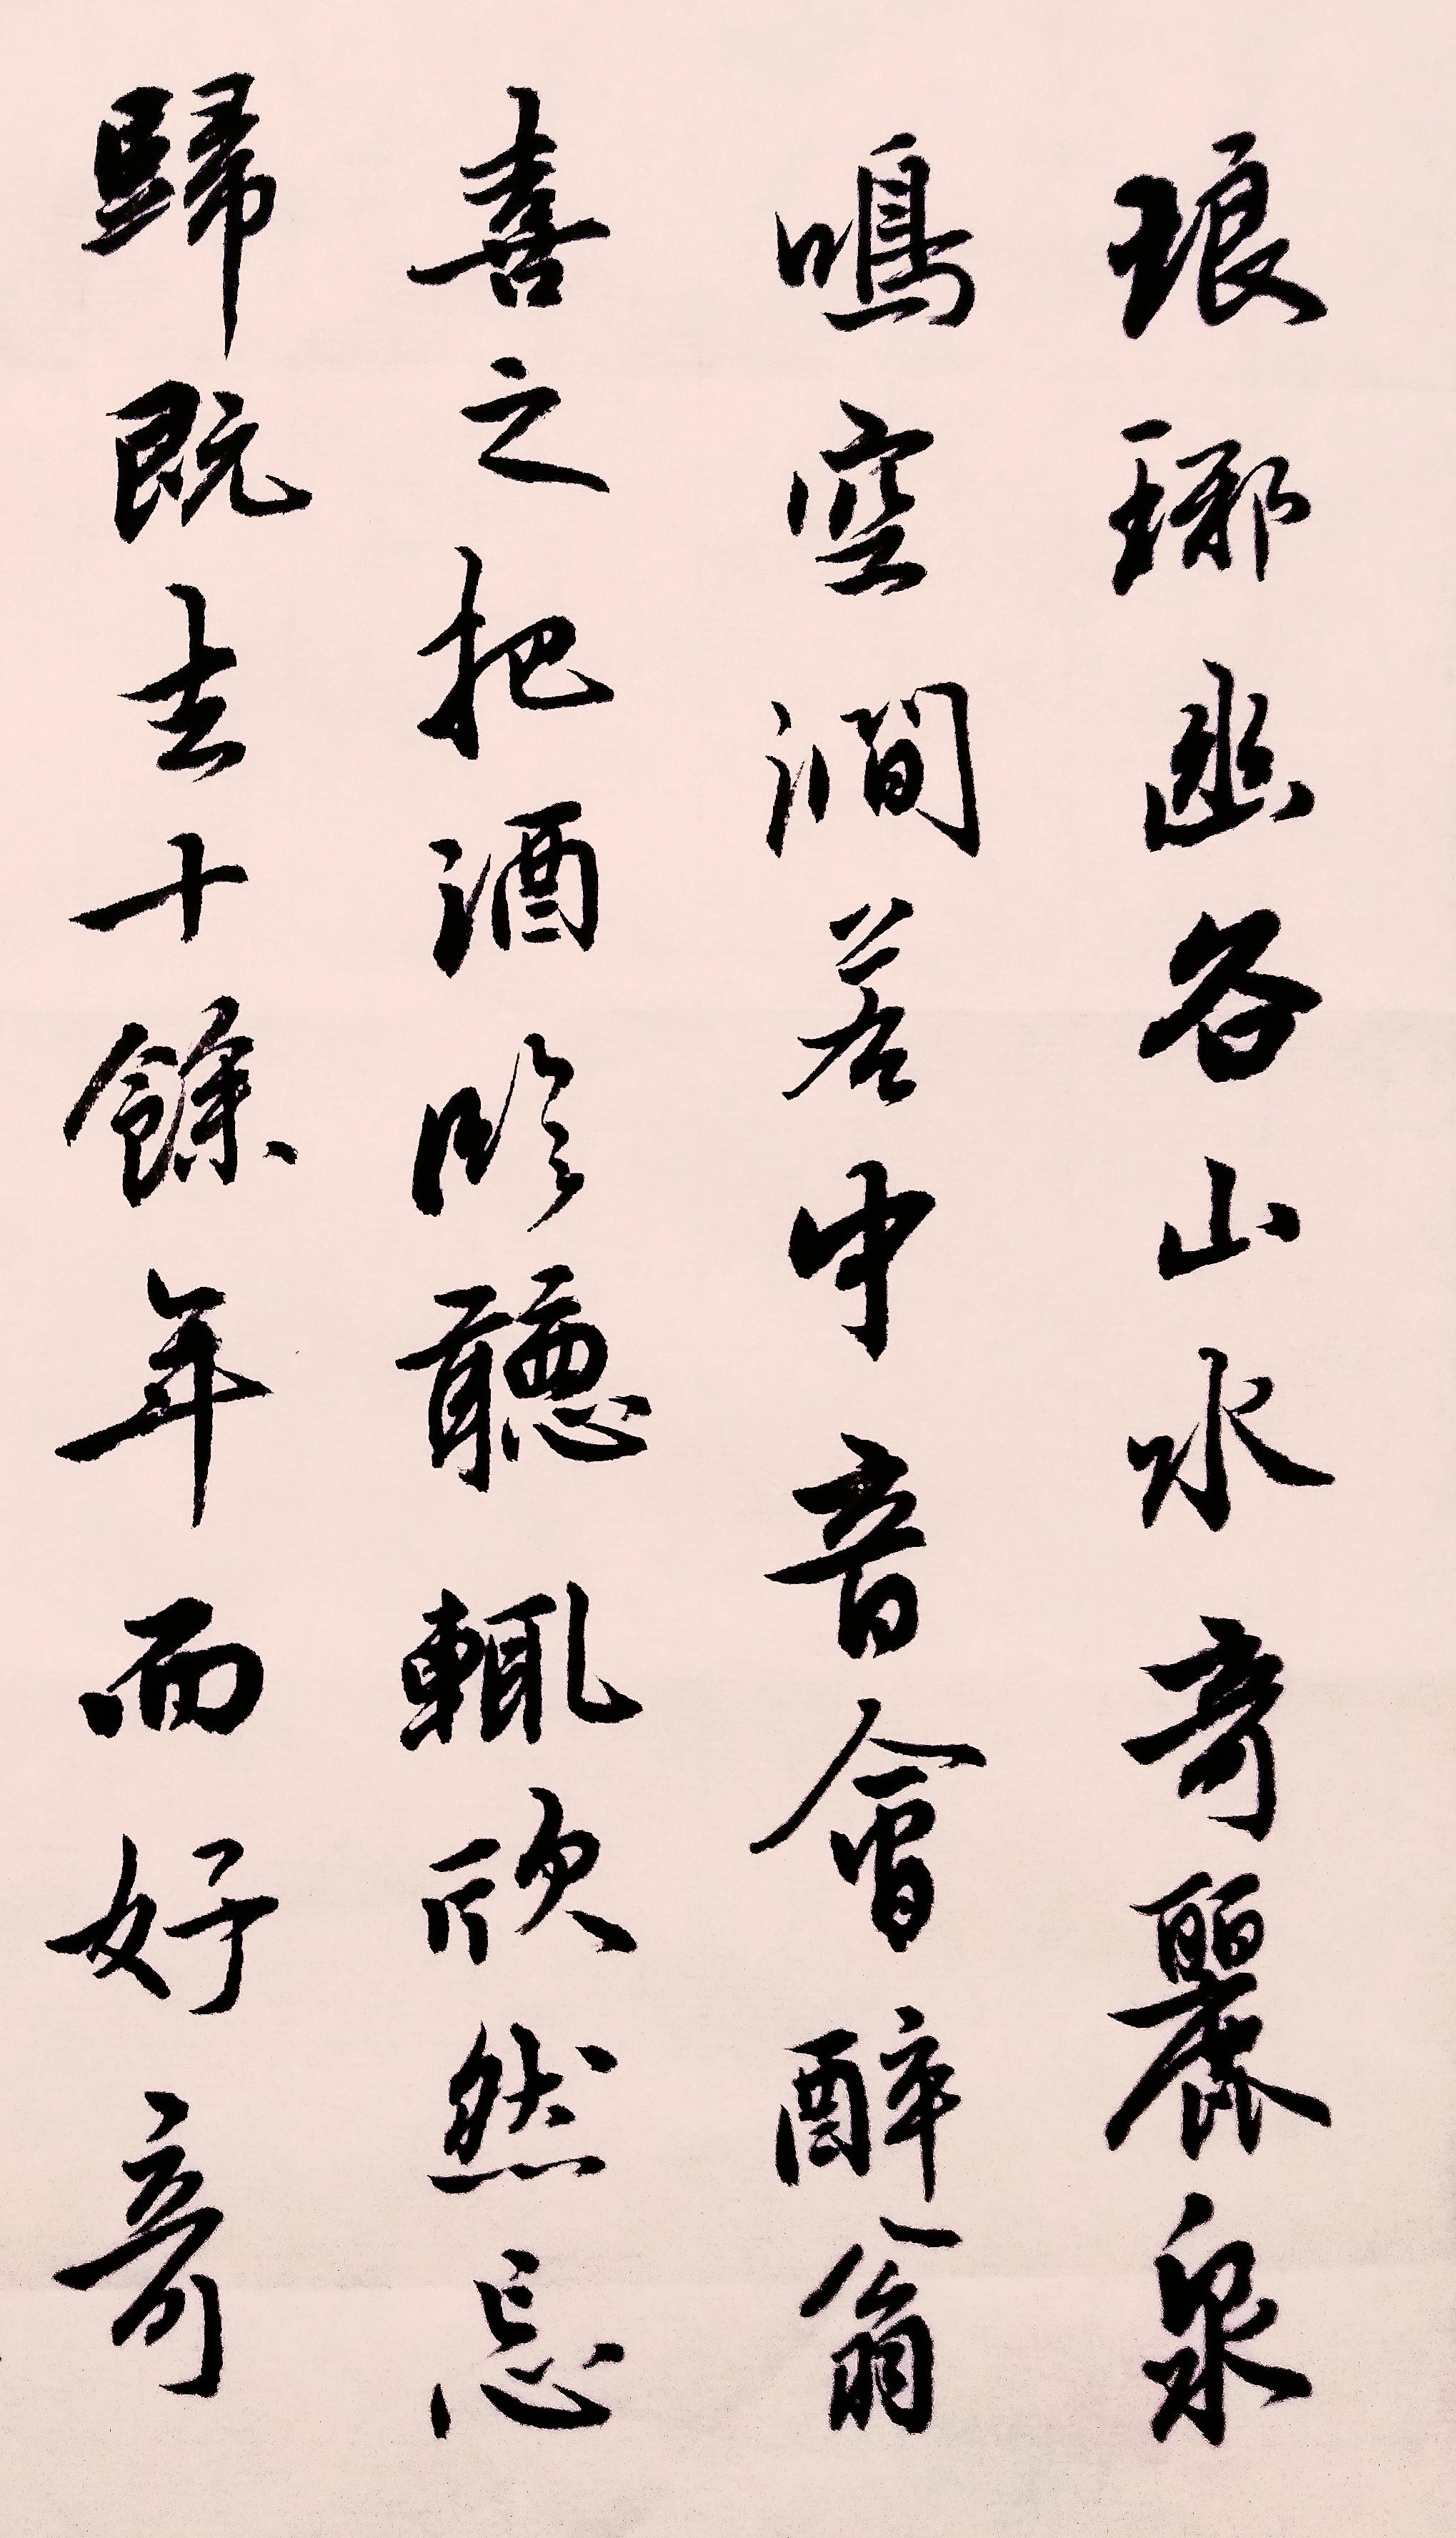 琅琊幽谷山水奇麗泉
鳴空澗若中音會醉翁
喜之把酒臨聽輒欣然忘
歸既去十餘年而好奇